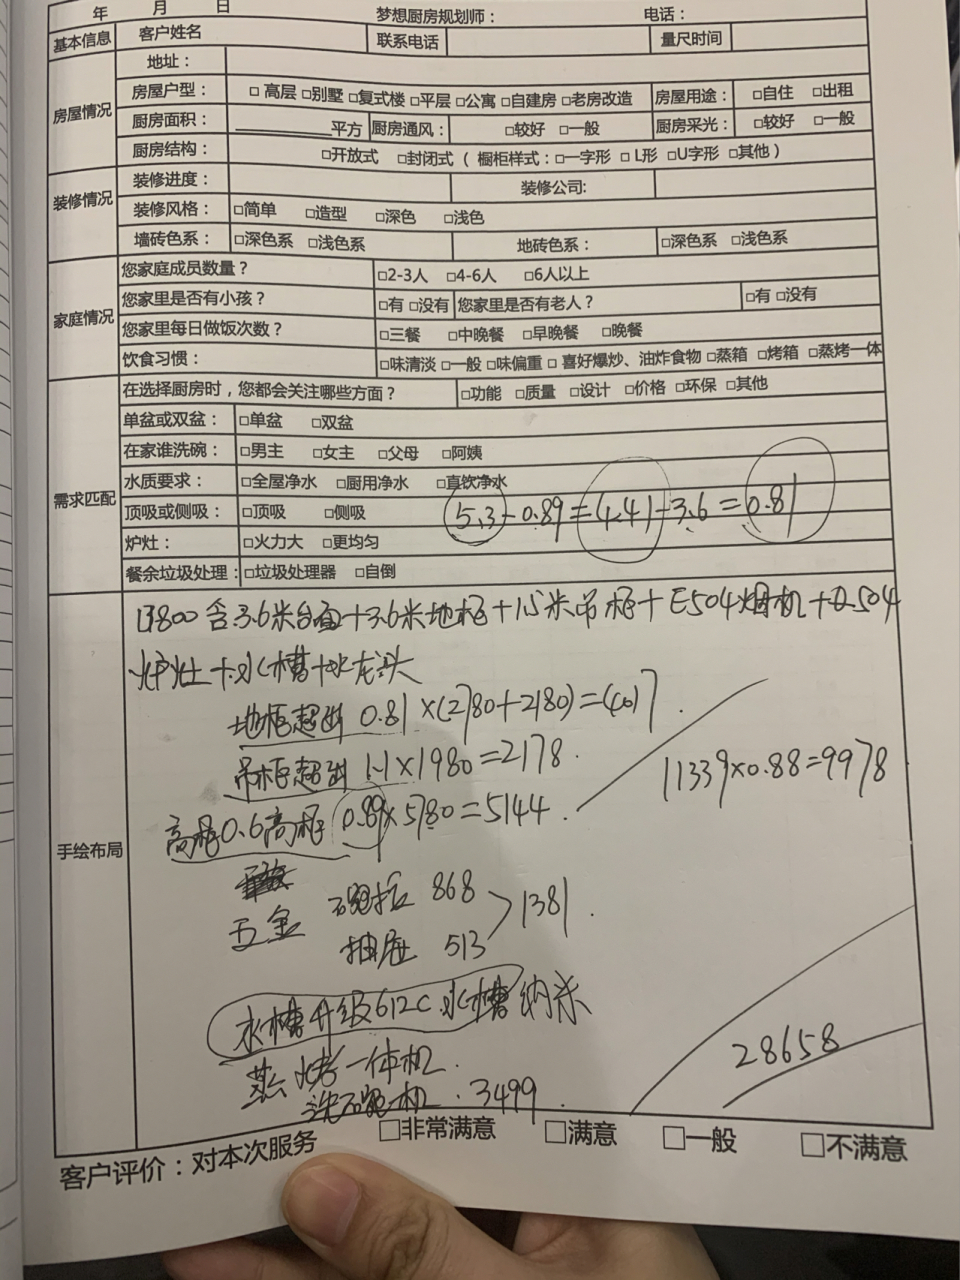 年 月 日 梦想厨房规划师： 电话：
基本信息 客户姓名 联系电话 量尺时间
房屋情况 地址：
房屋户型： □ 高层 □别墅 □复式楼 □平层 □公寓 □自建房 □老房改造 房屋用途： □自住 □出租
厨房面积： 平方 厨房通风： □较好 □一般 厨房采光： □较好 □一般
厨房结构： □开放式 □封闭式（ 橱柜样式：□一字形 □ L形 □U字形 □其他 ）
装修情况 装修进度： 装修公司:
装修风格： □简单 □造型 □深色 □浅色
墙砖色系： □深色系 □浅色系 地砖色系： □深色系 □浅色系
家庭情况 您家庭成员数量？ □2-3人 □4-6人 □6人以上
您家里是否有小孩？ □有 □没有 您家里是否有老人？ □有 □没有
您家里每日做饭次数？ □三餐 □中晚餐 □早晚餐 □晚餐
饮食习惯： □味清淡 □一般 □味偏重 □ 喜好爆炒、油炸食物 □蒸箱 □烤箱 □蒸烤一体
需求匹配 在选择厨房时，您都会关注哪些方面？ □功能 □质量 □设计 □价格 □环保 □其他
单盆或双盆： □单盆 □双盆
在家谁洗碗： □男主 □女主 □父母 □阿姨
水质要求： □全屋净水 □厨用净水 □直饮净水
5.3-0.89=4.41-3.6=0.81
顶吸或侧吸： □顶吸 □侧吸
炉灶： □火力大 □更均匀
餐余垃圾处理： □垃圾处理器 □自倒
手绘布局
含3.6米台面+3.6米地柜+1.5米吊柜+E504烟机+
炉灶+水槽+水龙头
地柜超出 0.81×(2780+2180)=4017
吊柜超出 1.1×1980=2178
11339×0.88=9978
高柜0.6高柜 0.89×5780=5144
五金 碗拉 868
抽屉 513
1381
水槽升级612C 水槽纳米
蒸烤一体机
28658
洗碗机 3499
客户评价：对本次服务 □非常满意 □满意 □一般 □不满意